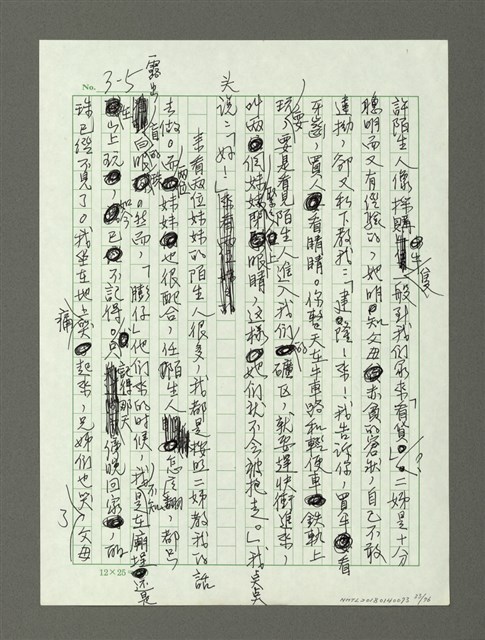 No. 3-5
許陌生人像採購牲畜一般到我們家來「看貨」。二姊是十分
聰明而又有經驗的,她明知父母赤貧的窘狀,自己不敢
違拗,卻又私下教我:「建隆!來!我告訴你,買牛要看
牙齒,買人看眼睛。你整天在牛車路和輕便車鐵軌上
玩,要是看見陌生人進入我們的礦區,就要趕快衝進來,
叫兩個妹妹緊閉上眼睛,這樣她們就不會被抱走。」我吳吳
头說:「好!」
來看兩位妹妹的陌生人很多,我都是按照二姊教我的話
去做。而兩位妹妹也很配合,任陌生人怎麼翻,都只
露出白眼。然而,「膨仔」他們來的時候,我不知是在廟埕還是
在山上玩,如今已不記得。只記得那天傍晚回家,
珠已經不見了。我坐在地上痛哭起來,兄姊們也哭了,父母
12×25